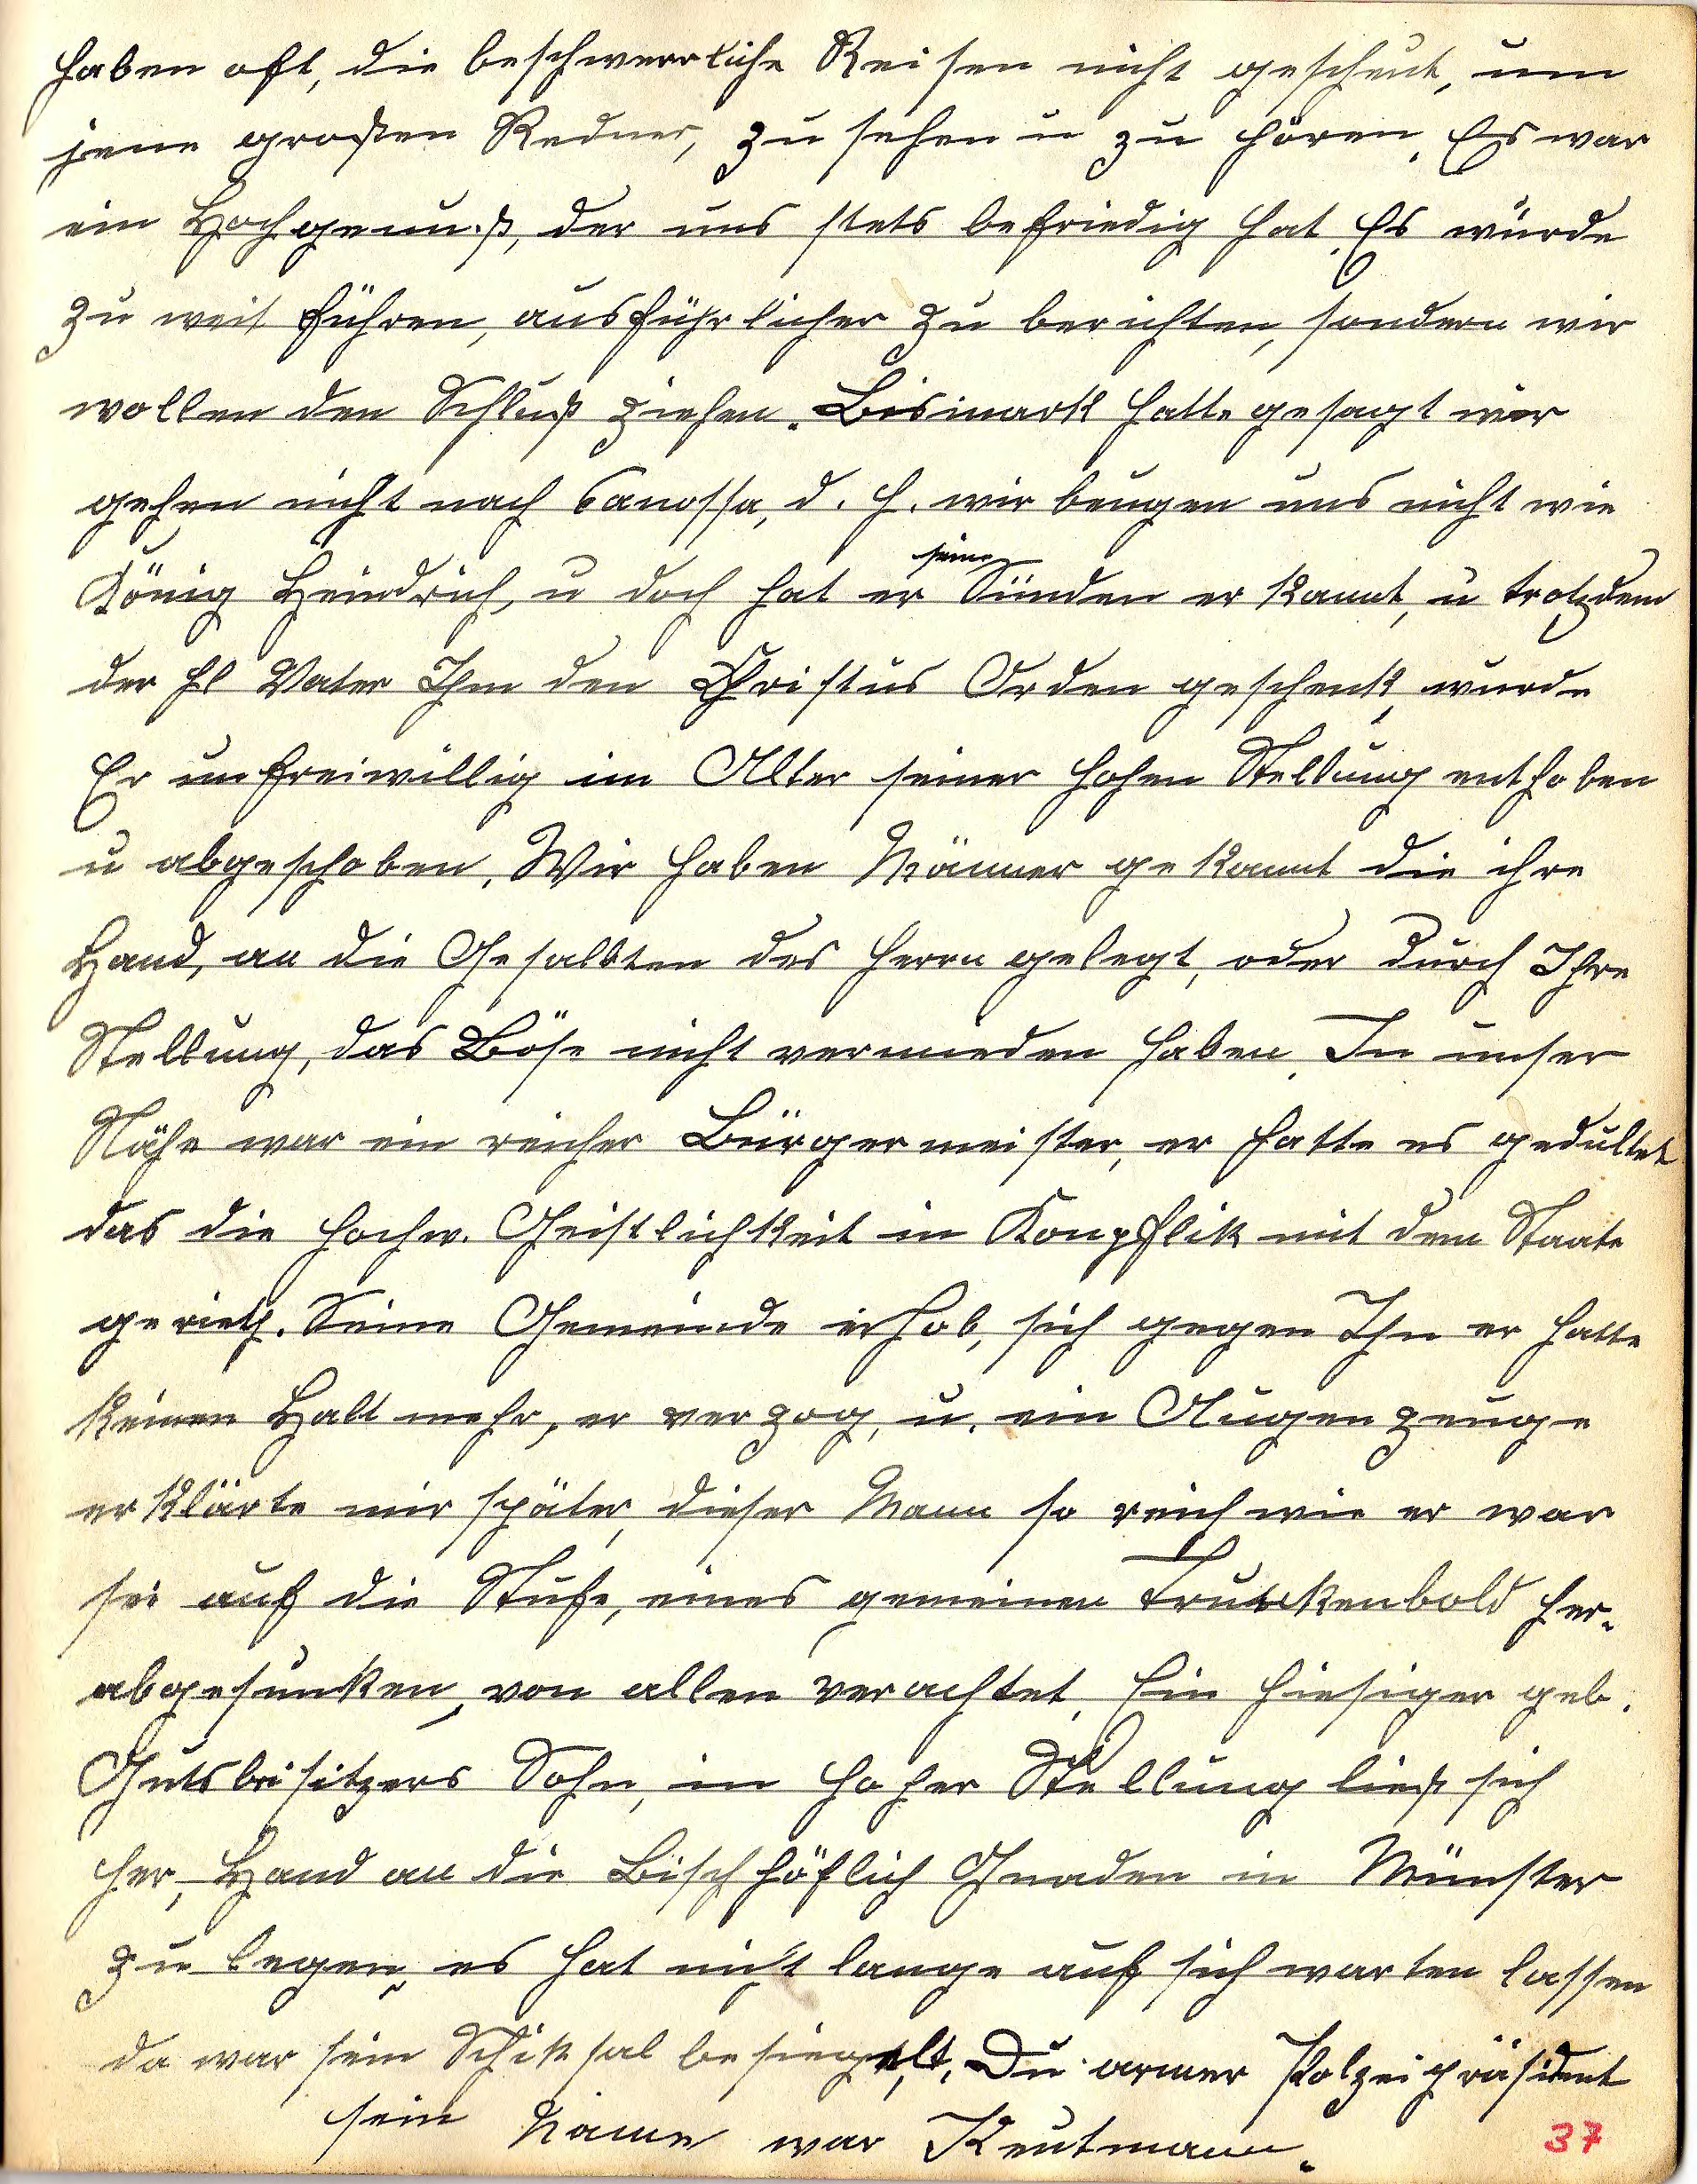 haben oft, die beschwerrliche Reisen nicht gescheut, um
jene großen Redner, zu sehen u zu hören. Es war
ein Hochgenuß, der uns stets befriedig hat. Es würde
zu weit führen, ausführlicher zu berichten, sondern wir
wollen den Schluß ziehen. Bismark hatte gesagt wir
gehen nicht nach Canossa, d. h. wir beugen uns nicht wie
seine
König Heindrich, u doch hat er Sünden er kannt, u trotzdem
der hl Vater Ihm den Christus Orden geschenk, wurde
Er unfreiwillig im Alter seiner hohen Stellung enthoben
u abgeschoben. Wir haben Männer gekannt die ihre
Hand, an die Gesalbten des Herrn gelegt, oder durch Ihre
Stellung, das Böse nicht vermieden haben. In unser
Nähe war ein reicher Bürgermeister, er hatte es gedultet
das die hochw. Geistlichkeit in Konpflik mit dem Staate
gerieth. Seine Gemeinde erhob, sich gegen Ihn er hatte
keinen Halt mehr, er verzog, u. ein Augenzeuge
erklärte mir später, dieser Mann so reich wie er war
sei auf die Stufe, eines gemeinen Trunkenbold her-
abgesunken, von allen verachtet. Ein hiesiger geb.
Gutsbesitzers Sohn, in hoher Stellung ließ sich
her, Hand an die Bischhöflich Gnaden in Münster
zu legen, es hat nicht lange auf sich warten lassen
da war sein Schiksal besiegelt. Du armer Polzeipräsident
sein Name war Keutmann.
37